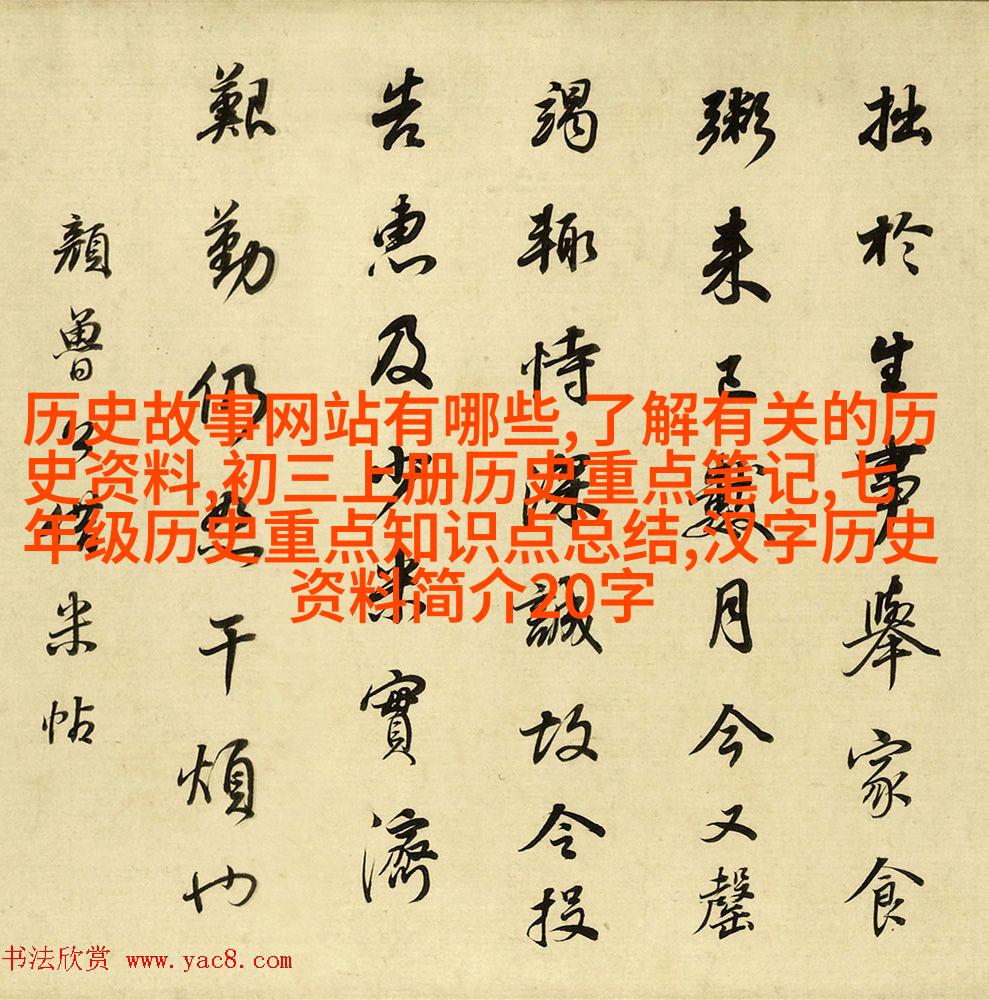 拙於生事舉家食
粥来已數月今又罄
竭輒恃深誠故令投
告惠及少米實濟
艱勤仍恕干煩也
顏魯公借米帖
历史故事网站有哪些,了解有关的历
史资料,初三上册历史重点笔记,七
年级历史重点知识点总结,汉字历史
资料简介20字
书法欣赏 www.yac8.com